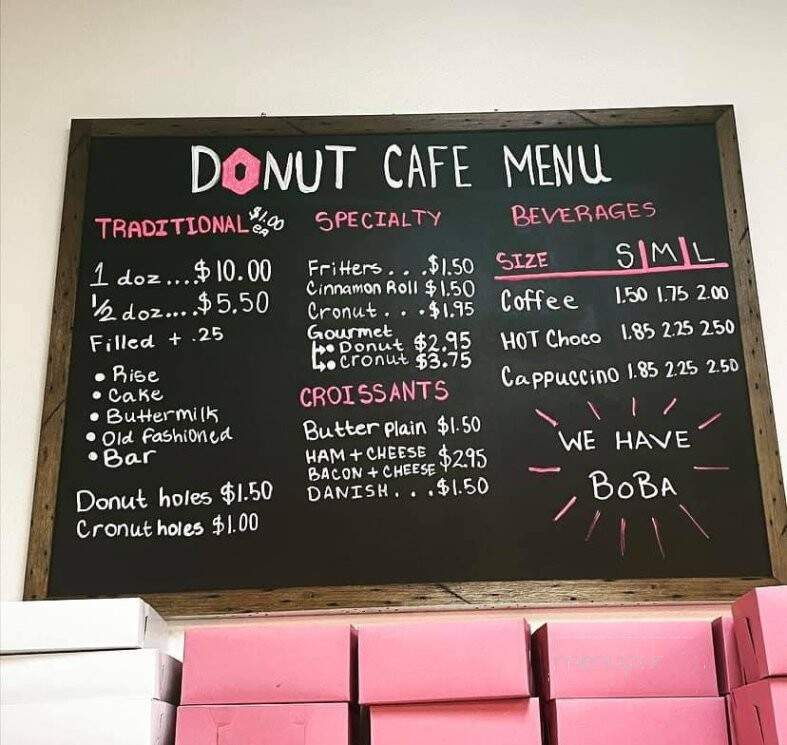 DONUT CAFE MENU
TRADITIONAL $1.00 EA
1 doz....$10.00
1/2 doz....$5.50
Filled + .25
• Rise
• Cake
• Buttermilk
• Old fashioned
• Bar
Donut holes $1.50
Cronut holes $1.00
SPECIALTY
Fritters...$1.50
Cinnamon Roll $1.50
Cronut...$1.95
Gourmet
• Donut $2.95
• Cronut $3.75
CROISSANTS
Butter Plain $1.50
HAM + CHEESE
BACON + CHEESE $2.95
DANISH...$1.50
BEVERAGES
SIZE S|M|L
Coffee 1.50 1.75 2.00
HOT Choco 1.85 2.25 2.50
Cappuccino 1.85 2.25 2.50
WE HAVE
BOBA